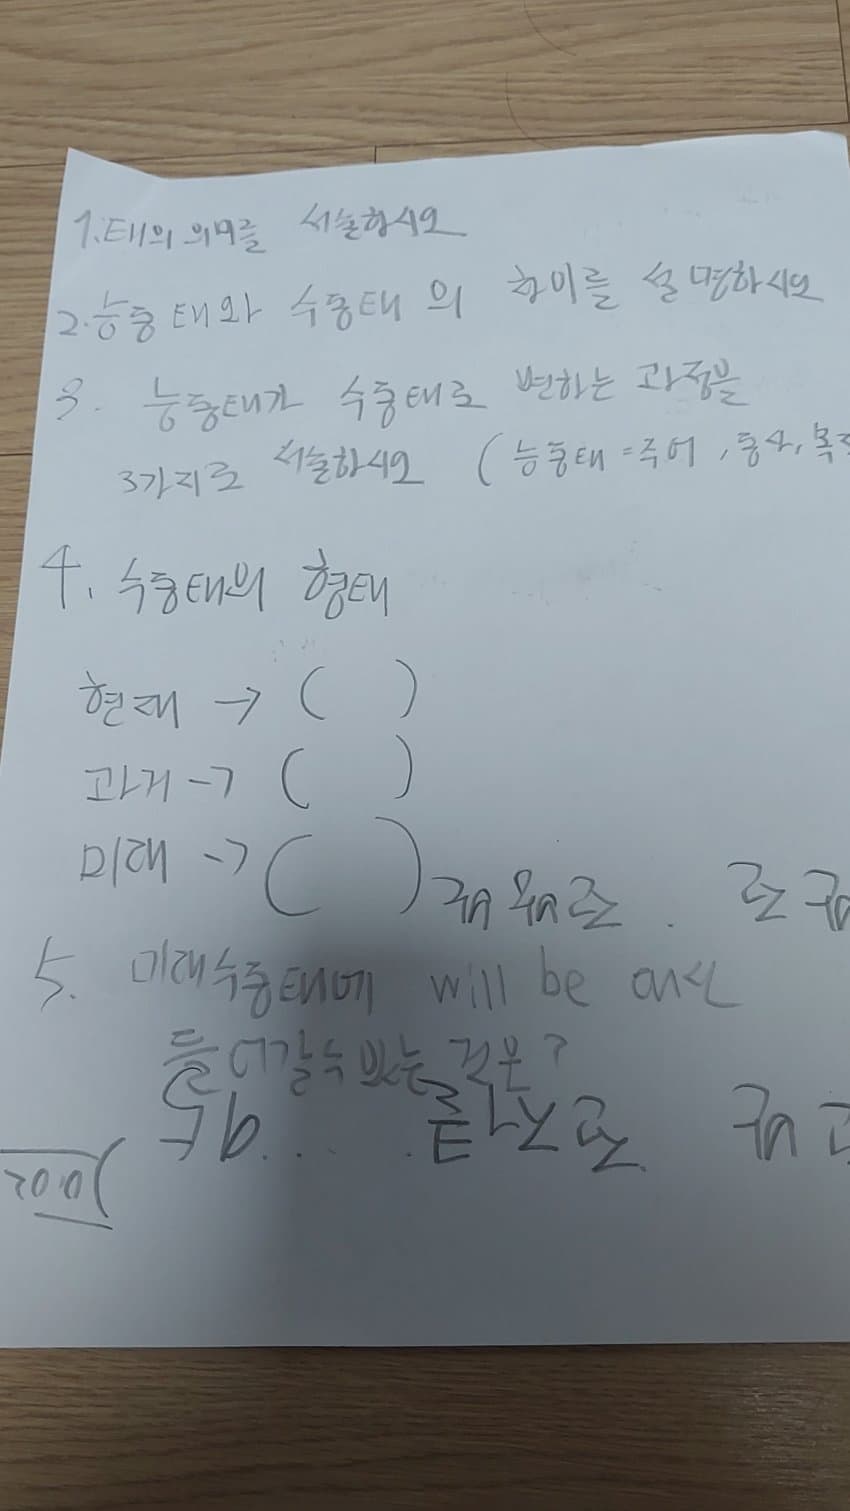 1. 태의 의미를 서술하시오
2. 능동태와 수동태의 차이를 설명하시오
3. 능동태가 수동태로 변하는 과정을
3가지로 서술하시오 (능동태 = 주어, 동사, 목적
4. 수동태의 형태
현재 → ( )
과거 → ( )
미래 → ( )
5. 미래수동태에 will be 에서
들어갈수 있는 것은?